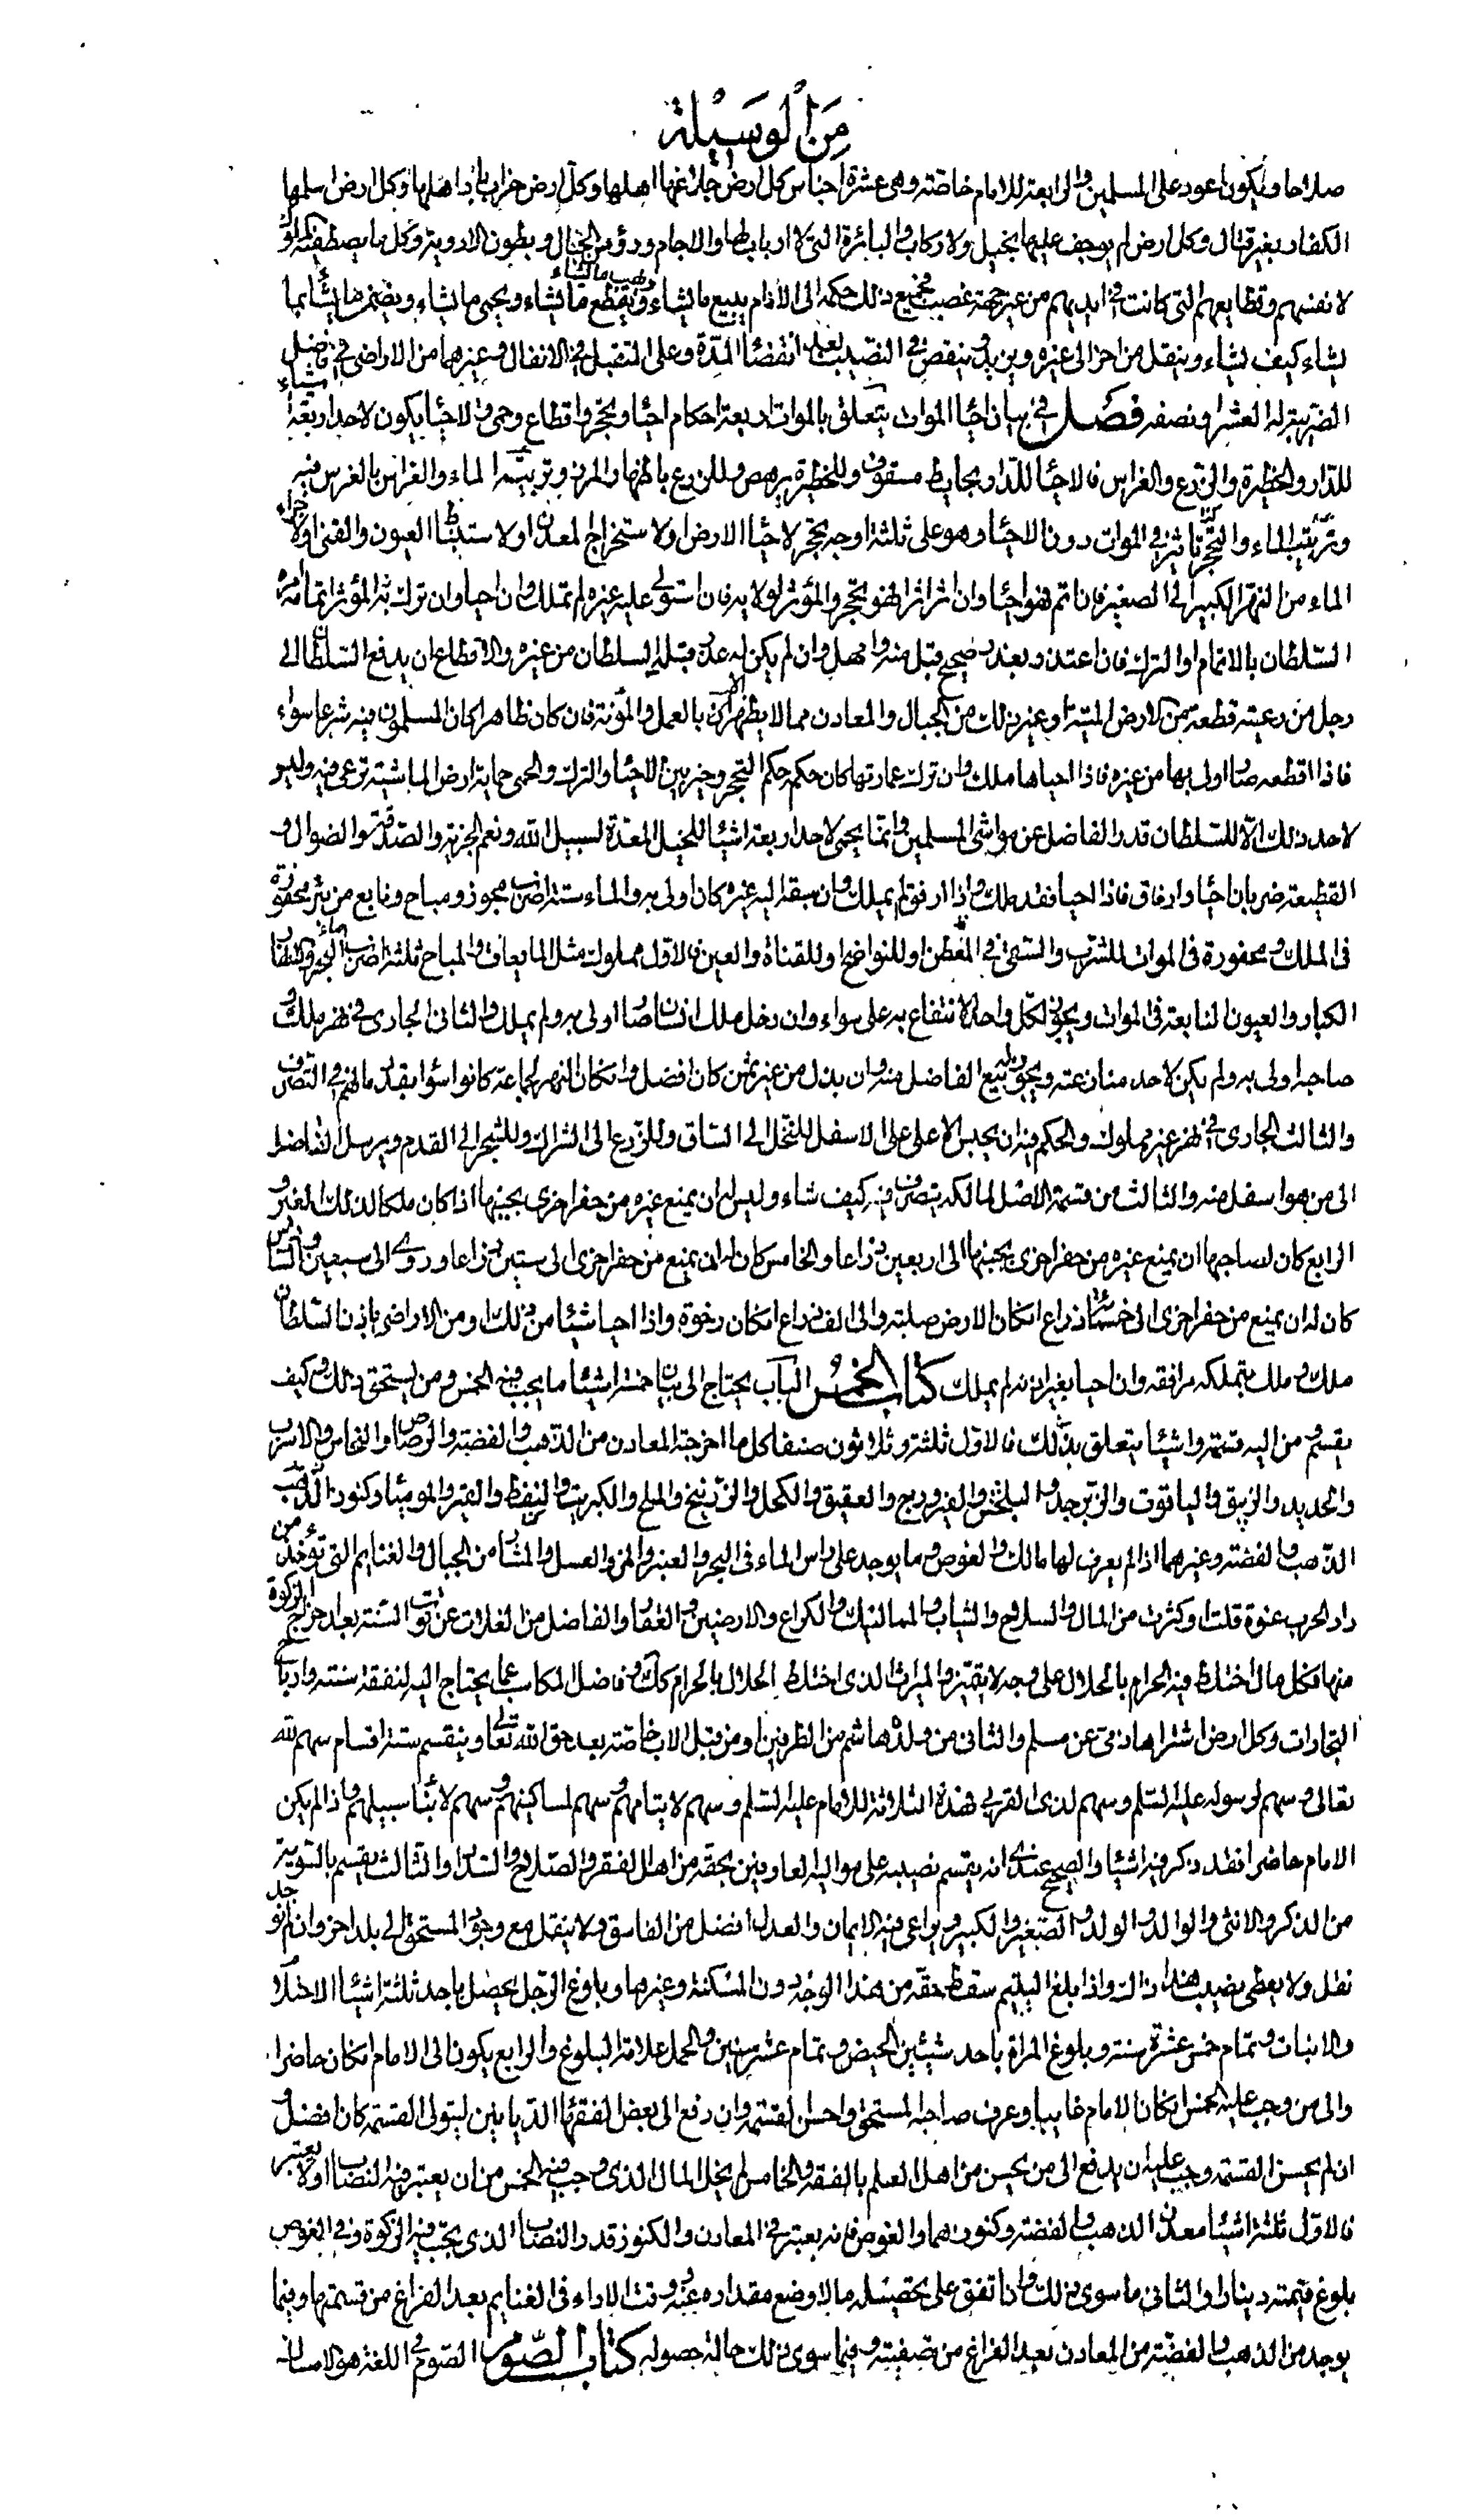 مِنَ الْوَسِيْلة
صلاحا ويكون اعود على المسلمين والرابعة للامام خاصة وهى عشرة اجناس كل ارض جلا عنها اهلها وكل ارض خراب باد اهلها وكل ارض اسلمها
الكفار بغير قتال وكل ارض لم يوجف عليها بخيل ولا ركاب والبائرة التى لا ارباب لها والاجام ورؤس الجبال وبطون الاودية وكل ما يصطفيه الملوك
لانفسهم وقطايعهم التى كانت فى ايديهم من غير جهة غصب فجميع ذلك حكمه الى الامام يبيع ما يشاء ويهب ما يشاء ويقطع ما يشاء ويحيى ما يشاء ويضمن ما يشاء بما
يشاء كيف يشاء وينقل من اخر الى غيره ويزيد وينقص فى النصيب بعد انقضا المدة وعلى المتقبل فى الانفال وغيرها من الاراضى فى فاضل
الضريبة العشر او نصفه فصل فى بيان احيا الموات يتعلق بالموات اربعة احكام احيا وتحجر واقطاع وحمى والاحيا يكون لاحد اربعة اشياء
للدار والحظيرة والزرع والغراس فالاحيا للدار بحايط مسقوف وللحظيرة برهص وللزرع باظهار المرز وترتيب الماء والغراس بالغرس فيه
وترتيب الماء والتحجر تاثير فى الموات دون الاحيا وهو على ثلثة اوجه تحجر لاحيا الارض او لاستخراج المعدن او لاستنباط العيون والقنى او لاجراء
الماء من النهر الكبير الى الصغير فان اتم فهو احيا وان اثر اثرا فهو تحجر والمؤثر اولى به فان استولى عليه غيره لم تملك وان احيا وان ترك المؤثر اتمامه امره
السلطان بالاتمام او الترك فان اعتذر بعذر صحيح قبل منه وامهل وان لم يكن له عذر قبله السلطان من غيره والاقطاع ان يدفع السلطان الى
رجل من رعيته قطعة من الارض الميتة او غير ذلك من الجبال والمعادن مما لا يظهر الا بالعمل والمؤنة فان كان ظاهرا كان المسلمون فيه شرعا سواء
فاذا اقطعه صار اولى بها من غيره فاذا احياها ملك وان ترك عمارتها كان حكمه حكم التحجر وخير بين الاحيا والترك والحمى حماية ارض الماشية ترعى فيه وليس
لاحد ذلك الا للسلطان قدر الفاضل عن مواشى المسلمين وانما يحمى لاحد اربعة اشيا للخيل المعدة لسبيل الله ونعم الجزية والصدقة والضوال و
القطيعة ضربان احيا وارفاق فاذا احيا فقد ملك واذا ارفق لم يملك وان سبقه اليه غيره كان اولى به والماء ستة اضرب محوز ومباح ونابع من بئر محفورة
فى الملك ومحفورة فى الموات للشرب والسقى فى المعطن او للنواضح او للقناة والعين فالاول مملوك مثل المايعات والمباح ثلثة اضرب ماء البحر والانهار
الكبار والعيون النابعة فى الموات ويجوز لكل واحد الانتفاع به على سواء وان دخل ملك انسان صار اولى به ولم يملك والثانى الجارى فى نهر ملك
صاحبه اولى به ولم يكن لاحد منازعته ويجوز له بيع الفاضل منه وان بذل من غير ثمن كان افضل وان كان النهر لجماعة كانوا سواء بقدر مالهم فى التصرف
والثالث الجارى فى نهر غير مملوك والحكم فيه ان يحبس الاعلى على الاسفل للنخل الى الساق وللزرع الى الشراك وللشجر الى القدم ويرسل الفاضل
الى من هو اسفل منه والثالث من قسمة الاصل لمالكه يتصرف فيه كيف شاء وليس له ان يمنع غيره من حفر اخرى بجنبها اذا كان ملكا لذلك الغير و
الرابع كان لصاحبها ان يمنع غيره من حفر اخرى بجنبها الى اربعين ذراعا والخامس كان له ان يمنع من حفر اخرى الى ستين ذراعا وروى الى سبعين والسادس
كان له ان يمنع من حفر اخرى الى خمسمائة ذراع ان كان الارض صلبة والى الف ذراع ان كان رخوة واذا احيا شيئا من ذلك او من الاراضى باذن السلطان
ملك وملك بتملكه مرافقه وان احيا بغير اذنه لم يملك كتاب الخمس الباب يحتاج الى بيان خمسة اشيا ما يجب فيه الخمس ومن يستحق ذلك وكيف
يقسم ومن اليه قسمته واشيا يتعلق بذلك فالاول ثلثة وثلاثون صنفا كل ما اخرجته المعادن من الذهب والفضة والرصاص والنحاس والاسرب
والحديد والزيبق والياقوت والزبرجد والبلخش والفيروزج والعقيق والكحل والزرنيخ والملح والكبريت والنفط والقير والموميا وكنوز الذهب
الذهب والفضة وغيرهما اذا لم يعرف لها مالك والغوص وما يوجد على راس الماء فى البحر والعنبر والمن والعسل والمشار من الجبال والغنايم التى تؤخذ من
دار الحرب عنوة قلت او كثرت من المال والسلاح والثياب والمماليك والكراع والارضين والعقار والفاضل من الغلات عن قوت السنة بعد اخراج الزكوة
منها وكل مال اختلط فيه الحرام بالحلال على وجه لا يتميز والميراث الذى اختلط الحلال بالحرام كك وفاضل المكاسب عما يحتاج اليه لنفقة سنته وارباح
التجارات وكل ارض اشتراها ذمى عن مسلم والثانى من ولده هاشم من الطرفين او من قبل الاب خاصة بعد حق الله تعالى وينقسم ستة اقسام سهم لله
تعالى وسهم لرسوله عليه السلم وسهم لذى القربى فهذه الثلاثة للامام عليه السلم وسهم لايتامهم وسهم لمساكينهم وسهم لابنا سبيلهم واذا لم يكن
الامام حاضرا فقد ذكر فيه اشيا والصحيح عندى انه يقسم نصيبه على مواليه العارفين بحقه من اهل الفقر والصلاح والسداد والثالث يقسم بالسوية
من الذكر والانثى والوالد والولد والصغير والكبير ويراعى فيه الايمان والعدل افضل من الفاسق ولا ينقل مع وجود المستحق الى بلد اخر وان لم يوجد
نقل ولا يعطى نصيب هذا ذاك واذا بلغ اليتيم سقط حقه من هذا الوجه دون المسكنة وغيرها وبلوغ الرجل يحصل باحد ثلثة اشيا الاحتلام
والانبات وتمام خمس عشرة سنة وبلوغ المراة باحد شيئين الحيض وتمام عشر سنين والحمل علامة البلوغ والرابع يكون الى الامام ان كان حاضرا
والى من وجب عليه الخمس ان كان الامام غايبا وعرف صاحبه المستحق واحسن القسمة وان دفع الى بعض الفقها الديانين ليتولى القسمة كان افضل و
ان لم يحسن القسمة وجب عليه ان يدفع الى من يحسن من اهل العلم بالفقه والخامس لم يخل المال الذى وجب فيه الخمس من ان يعتبر فيه النصاب او لا يعتبر
فالاول ثلثة اشيا معدن الذهب والفضة وكنوزهما والغوص فانه يعتبر فى المعادن والكنوز قدر النصاب الذى يجب فيه الزكوة وفى الغوص
بلوغ قيمته دينارا والثانى ما سوى ذلك واذا انفق على تحصيله مالا وضع مقداره عنه ووقت الاداء فى الغنايم بعد الفراغ من قسمتها وفيما
يوجد من الذهب والفضة من المعادن بعد الفراغ من تصفيته وفيما سوى ذلك حالة حصوله كتاب الصوم الصوم فى اللغة هو الامساك